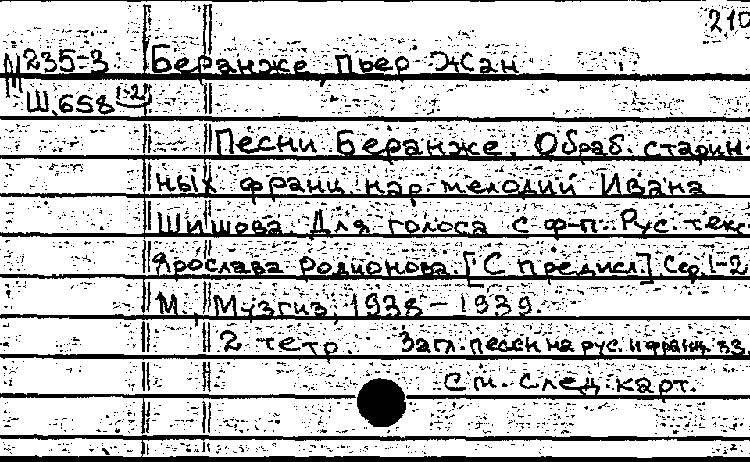 210
М235-3 Беранже, Пьер Жан
Ш.658 1-2
Песни Беранже. Обраб. старин-
ных франц. нар. мелодий Ивана
Шишова. Для голоса с ф-п. Рус. текс.
Ярослава Родионова. [С предисл.] Сер. 1-2
М., Музгиз, 1938-1939.
2 тетр. Загл. песен на рус. и франц. яз.
См. след. карт.